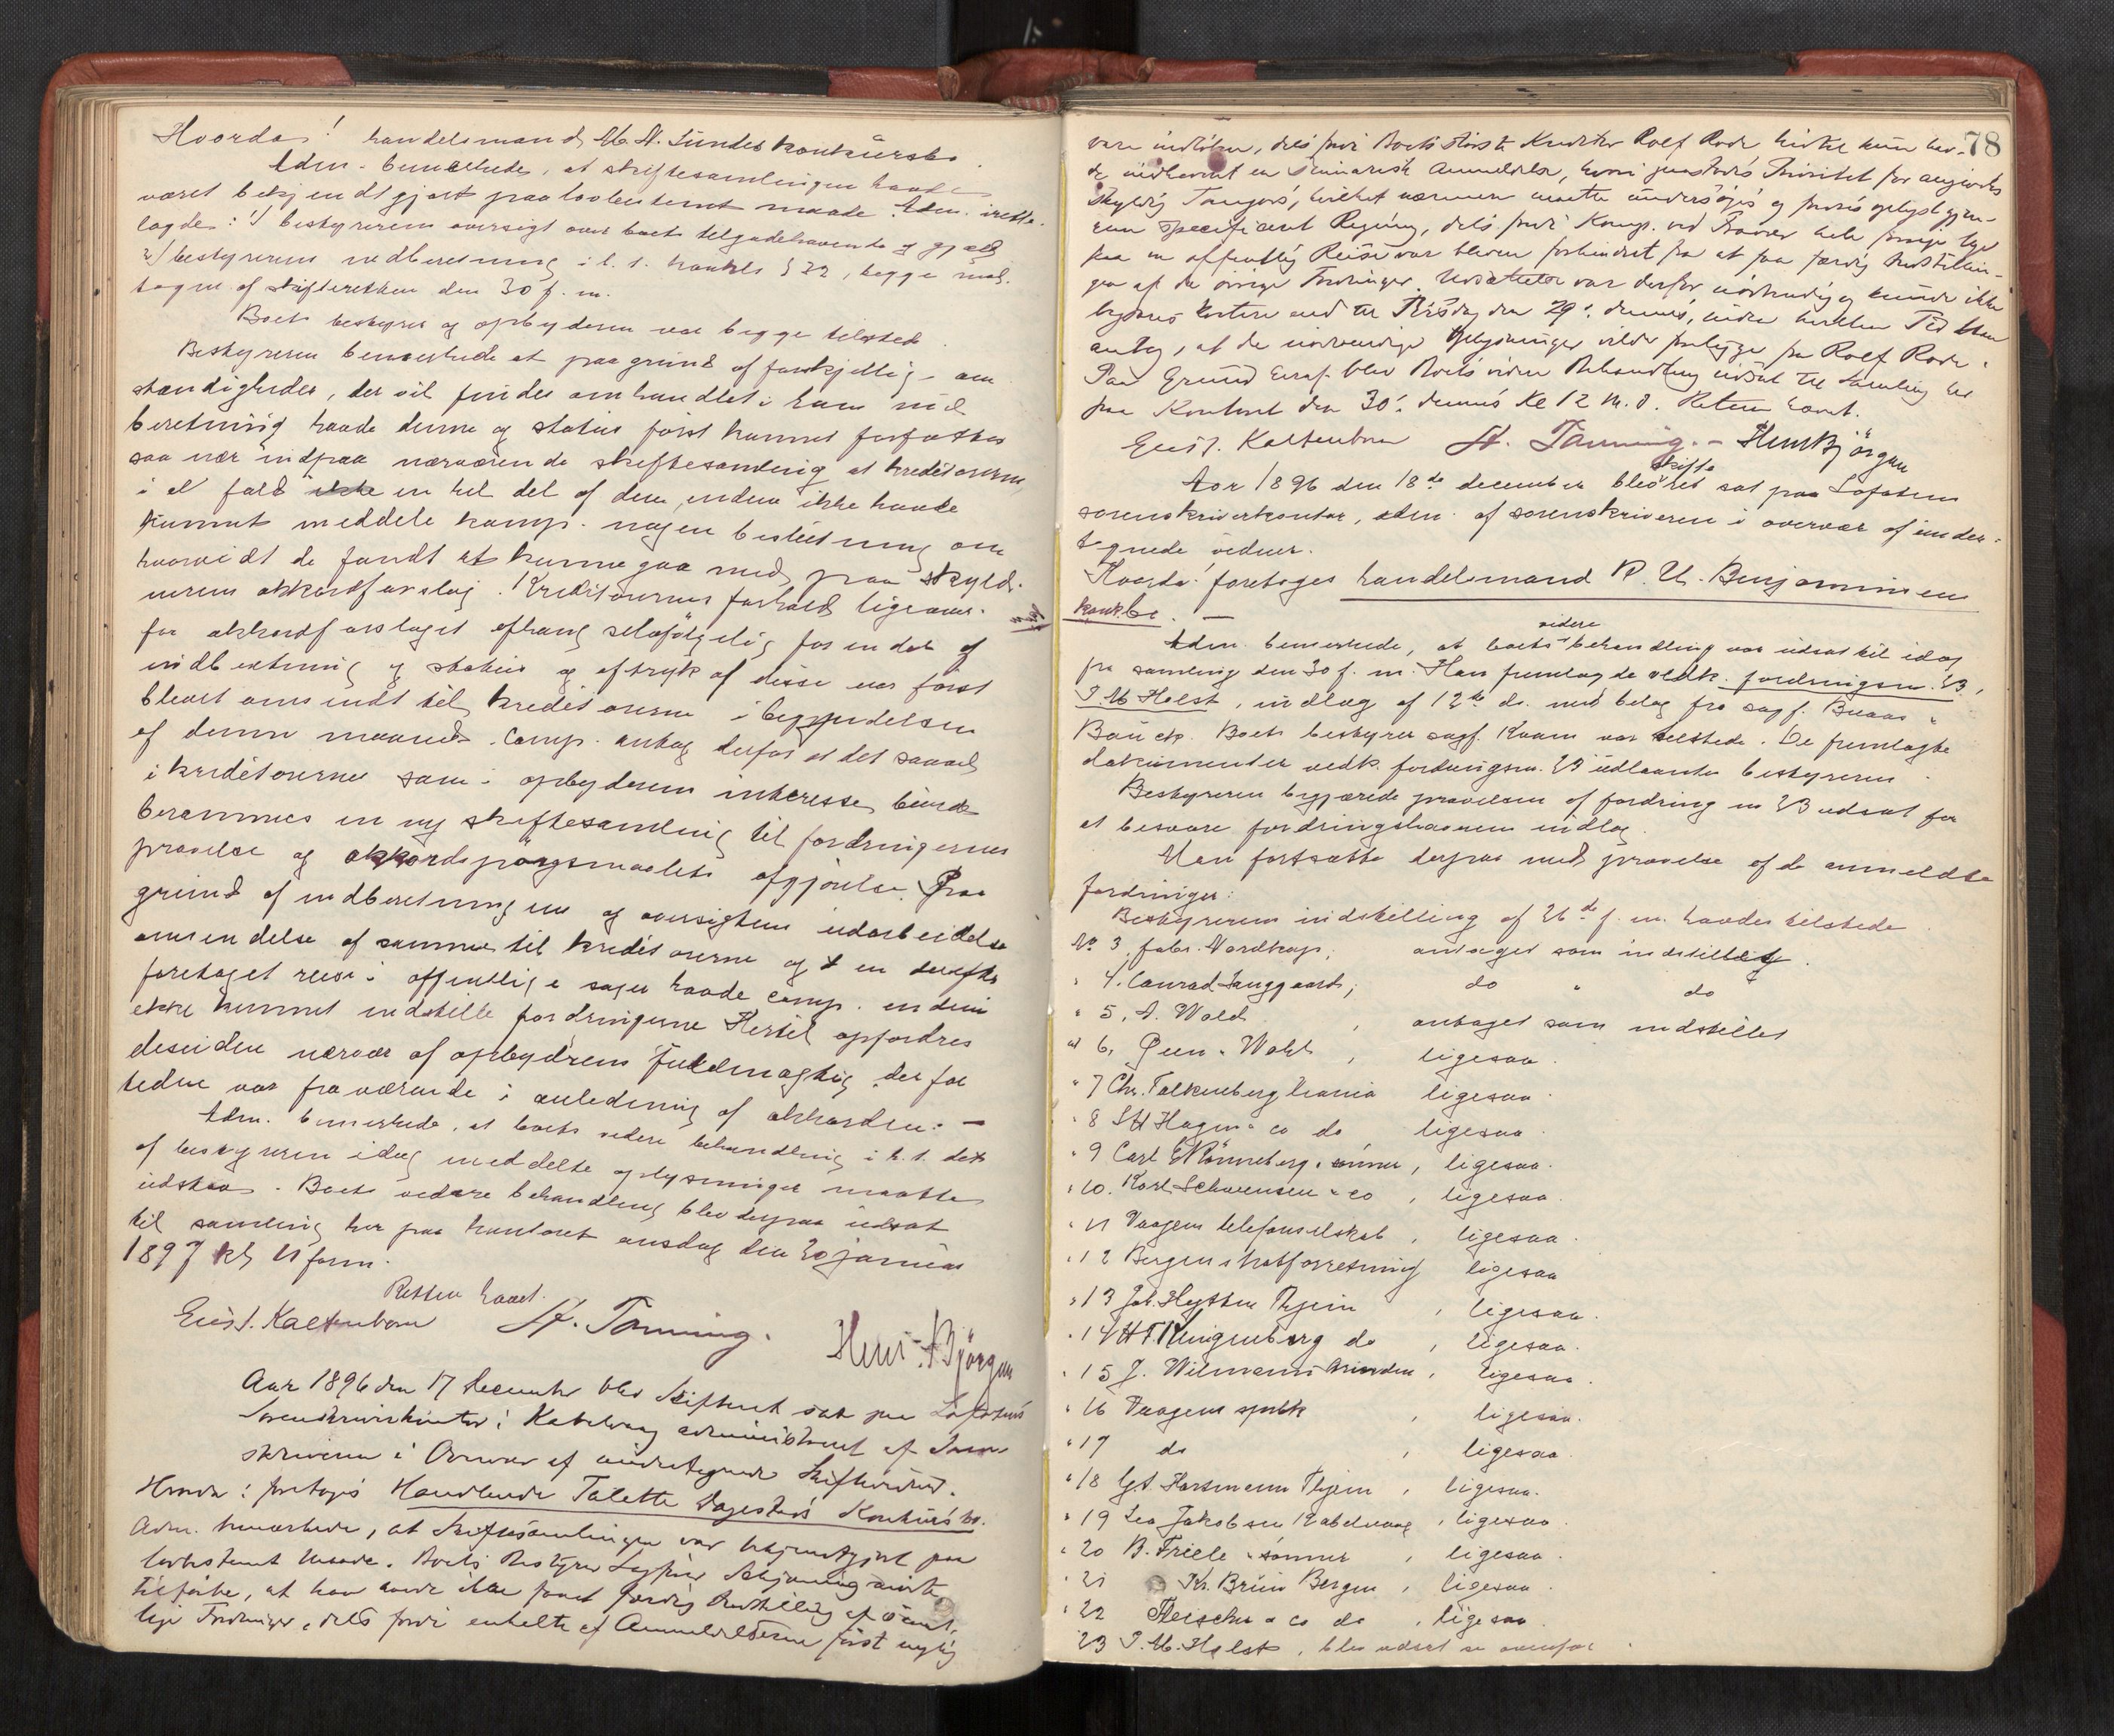 Hvorda! handelsmand M. N. Sundes konkursbo.
Adm. bemærkede, at skiftesamlingen havde
været bekjendtgjort paa lovbestemt maade. Adm. irette-
lagde: 1) bestyrerens oversigt over boets tilgodehavende og gjæld
2) bestyrerens indberetning i h. t. konkl. § 22, begge mod-
tagne af skifteretten den 30 f. m.
Boets bestyrer og opbyderen var begge tilstede.
Bestyreren bemærkede at paa grund af forskjellige om-
stændigheder, der vil findes omhandlet i hans ind-
beretning havde denne og status først kunnet forfattes
saa nær indpaa nærværende skiftesamling at kreditorerne,
i al fald en hel del af dem, endnu ikke havde
kunnet meddele komp. nogen beslutning om
hvorvidt de fandt at kunne gaa med paa skyld-
nerens akkordforslag. Kreditorernes forhold ligeover-
for akkordforslaget afhang selvfølgelig for en del af
indberetning og status og aftryk af disse var først
blevet omsendt til kreditorerne i begyndelsen
af denne maaned. Comp. antog derfor at det saavel
i kreditorernes som i opbyderens interesse burde
berammes en ny skiftesamling til fordringernes
prøvelse og akkordspørgsmaalets afgjørelse. Paa
grund af indberetningens og oversigtens udarbeidelse
omsendelse af samme til kreditorerne og en derefter
foretaget reise i offentlige sager havde comp. endnu
ikke kunnet indstille fordringerne. Hertil opfordres
desuden nærvær af opbyderens fuldmægtig, der for
tiden var fraværende i anledning af akkorden. —
Adm. bemærkede, at boets videre behandling i h. t. det
af bestyreren idag meddelte oplysninger maatte
udstaa. Boets videre behandling blev derpaa udsat
til samling her paa kontoret onsdag den 20 januar
1897 kl 11 form.
Retten hævet.
Eus. Kaltenborn A. Tanning. Henr. Bjørgan
Aar 1896 den 17 December blev Skifteret sat paa Lofotens
Sorenskriverkontor i Kabelvaag administreret af Soren-
skriveren i Overvær af undertegnede Skiftevidner.
Hvorda: foretoges Handlende Tolette Dagestads Konkursbo.
Adm. bemærkede, at Skiftesamlingen var bekjendtgjort paa
lovbestemt Maade. Boets Bestyrer Sagfører Schjønning
tilførte, at han havde ikke faaet færdig Indstilling af samt-
lige Fordringer, dels fordi enkelte af Anmeldelserne først nylig
78
vare indløbne, dels fordi Boets største Kreditor Rolf Rode hidtil kun hav-
de indleveret en summarisk Anmeldelse, hvori paastodes Prioritet for angivelig
skyldig, hvilket nærmere maatte undersøges og forøvrigt oplyst gjen-
nem specificeret Regning, dels fordi Komp. ved Fravær hele forrige Uge
paa en offentlig Reise var bleven forhindret fra at faa færdig Indstillin-
gen af de øvrige Fordringer. Udsættelse var derfor nødvendig og kunde ikke
begjæres kortere end til Tirsdag den 29. dennes, inden hvilken Tid han
antog, at de nødvendige Oplysninger vilde foreligge fra Rolf Rode.
Paa Grund heraf blev Boets videre Behandling udsat til Samling her
paa Kontoret den 30. dennes Kl 12 M. D. Retten hævet.
Eus. Kaltenborn A. Tanning. — Henr. Bjørgan
Aar 1896 den 18de december blev skifteret sat paa Lofotens
sorenskriverkontor, adm. af sorenskriveren i overvær af under-
tegnede vidner.
Hvorda! foretoges handelsmand R. U. Benjaminsens
konk.bo. —
Adm. bemærkede, at boets videre behandling var udsat til idag
fra samling den 30 f. m. Han fremlagde vedk. fordringen. 23,
J. M. Holst, indlæg af 12te ds. med bilag fra sagf.
Boets bestyrer sagf. Kaarn var tilstede. De fremlagte
dokumenter vedk. fordringsn. 23 udlaantes bestyreren.
Bestyreren begjærede prøvelsen af fordring no 23 udsat for
at besvare fordringshaverens indlæg.
Man fortsatte derpaa med prøvelse af de anmeldte
fordringer:
Bestyrerens indstilling af 26de f. m. havdes tilstede
No 3. Fabr. Nordkap, antaget som indstillet.
" 4. Conrad Langgaard, do " do
" 5. A. Wold , antaget som indstillet
" 6. Wold , ligesaa.
" 7 Chr. Falkenberg krania ligesaa.
" 8 S H Hagen & co do ligesaa.
" 9 Carl E Rønneberg & sønner, ligesaa.
" 10. Karl Schwensen & co , ligesaa.
" 11 Vaagens telefonselskab , ligesaa.
" 12 Bergens hatforretning ligesaa
" 13 Joh. Hyttens Thjem , ligesaa.
" 14 H F Klingenberg do , ligesaa.
" 15 J. Wilmanns Arvinder , ligesaa.
" 16 Vaagens spbk , ligesaa.
" 17 do , ligesaa.
" 18 Gst. Hartmann Thjem , ligesaa.
" 19 Lea Jakobsen Kabelvaag , ligesaa.
" 20 B. Friele & sønner , ligesaa.
" 21 Kr. Bruun Bergen , ligesaa.
" 22 Fleischer & co do , ligesaa
23 J. M. Holst , blev udsat se ovenfor.